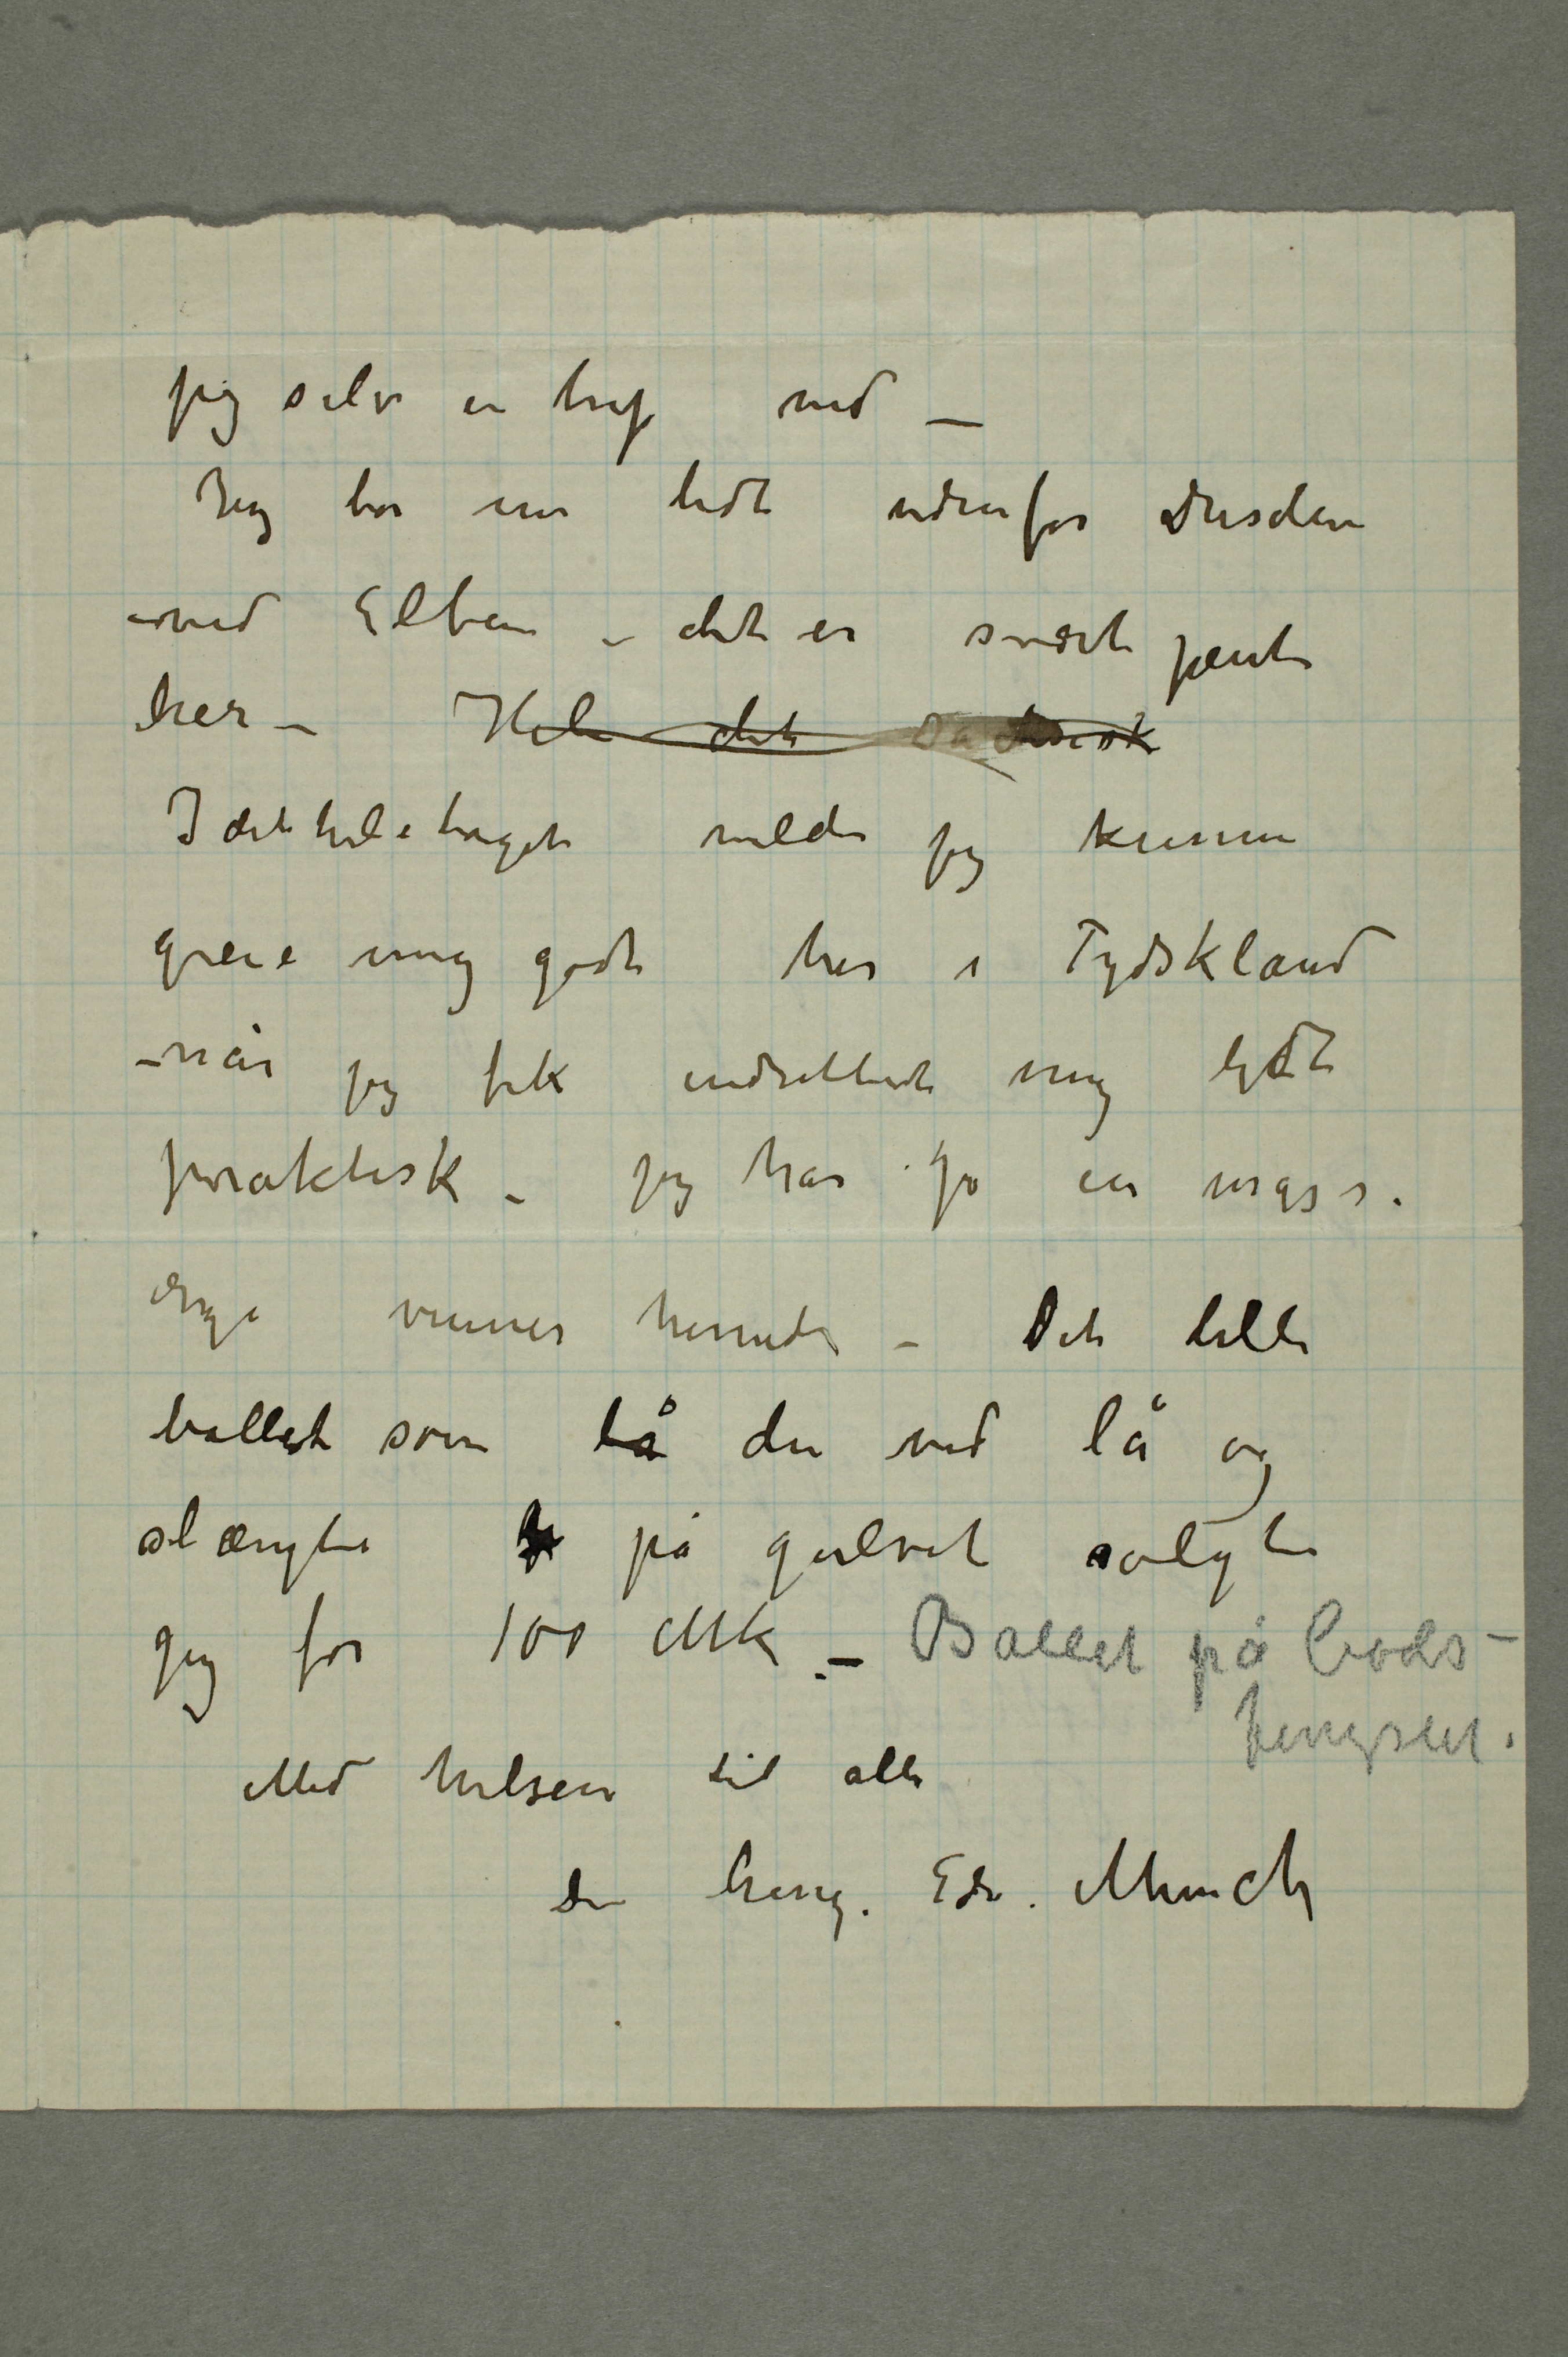 jeg selv er træt ved –
Jeg bor nu lidt udenfor Dresden
– ved Elben – det er svært pent
her – Hele det
I det hele taget vilde jeg kunne
greie mig godt her i Tydskland
– når jeg fik indrettet mig lidt
praktisk – jeg har jo en mass.
unge venner hernede – Det lille
ballet som lå du ved lå og
slængte på gulvet solgte
jeg for 100 Mk. – Ballet på Gods-
hengslet.
Med hilsen til alle
Din heng. Edv. Munch